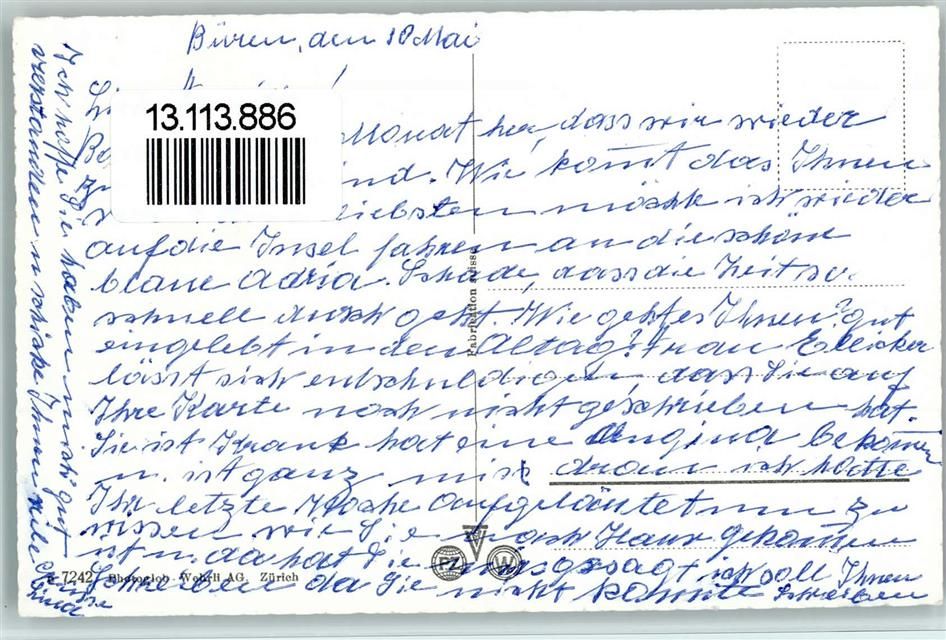 Büren, den 10 Mai
13.113.886
Monat her, dass wir wieder
Wie komt das Ihnen
liebsten möchte ich wieder
auf die Insel fahren an die schöne
blaue Adria. Schade, dass die Zeit so
schnell durch geht. Wie geht es Ihnen? gut
eingelebt in den Altag? Frau
lässt sich entschuldigen, dass Sie auf
Ihre Karte noch nicht geschrieben hat.
Sie ist Krank hat eine Angina bekomen
u. ist ganz
Ihr letzte Woche aufgeläutet um zu
wissen wie Sie nach Haus gekomen
ist u. da hat Sie gesagt ich soll Ihnen
schreiben da Sie nicht komte schreiben
Ich hoffe Sie haben mich gut
verstanden u. schicke Ihnen viele Grüsse
Fabrikation suisse
7242 Photoglob-Wehrli AG. Zürich
PZ W